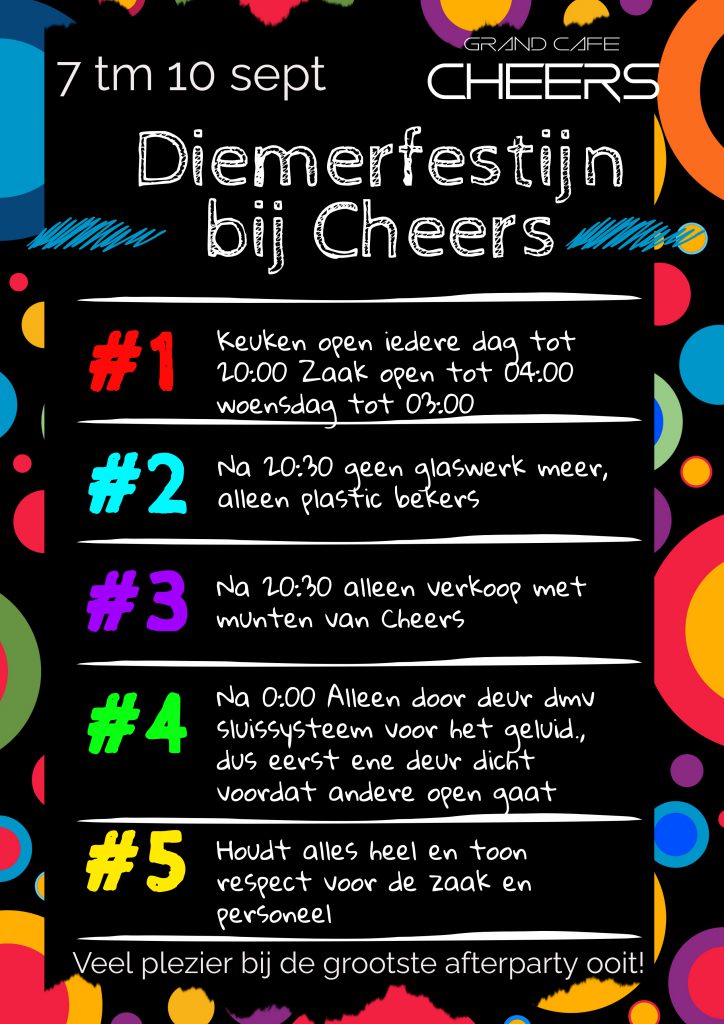 7 tm 10 sept
GRAND CAFE
CHEERS
Diemerfestijn
bij Cheers
#1
Keuken open iedere dag tot
20:00 Zaak open tot 04:00
woensdag tot 03:00
#2
Na 20:30 geen glaswerk meer,
alleen plastic bekers
#3
Na 20:30 alleen verkoop met
munten van Cheers
#4
Na 0:00 Alleen door deur dmv
sluissysteem voor het geluid.,
dus eerst ene deur dicht
voordat andere open gaat
#5
Houdt alles heel en toon
respect voor de zaak en
personeel
Veel plezier bij de grootste afterparty ooit!